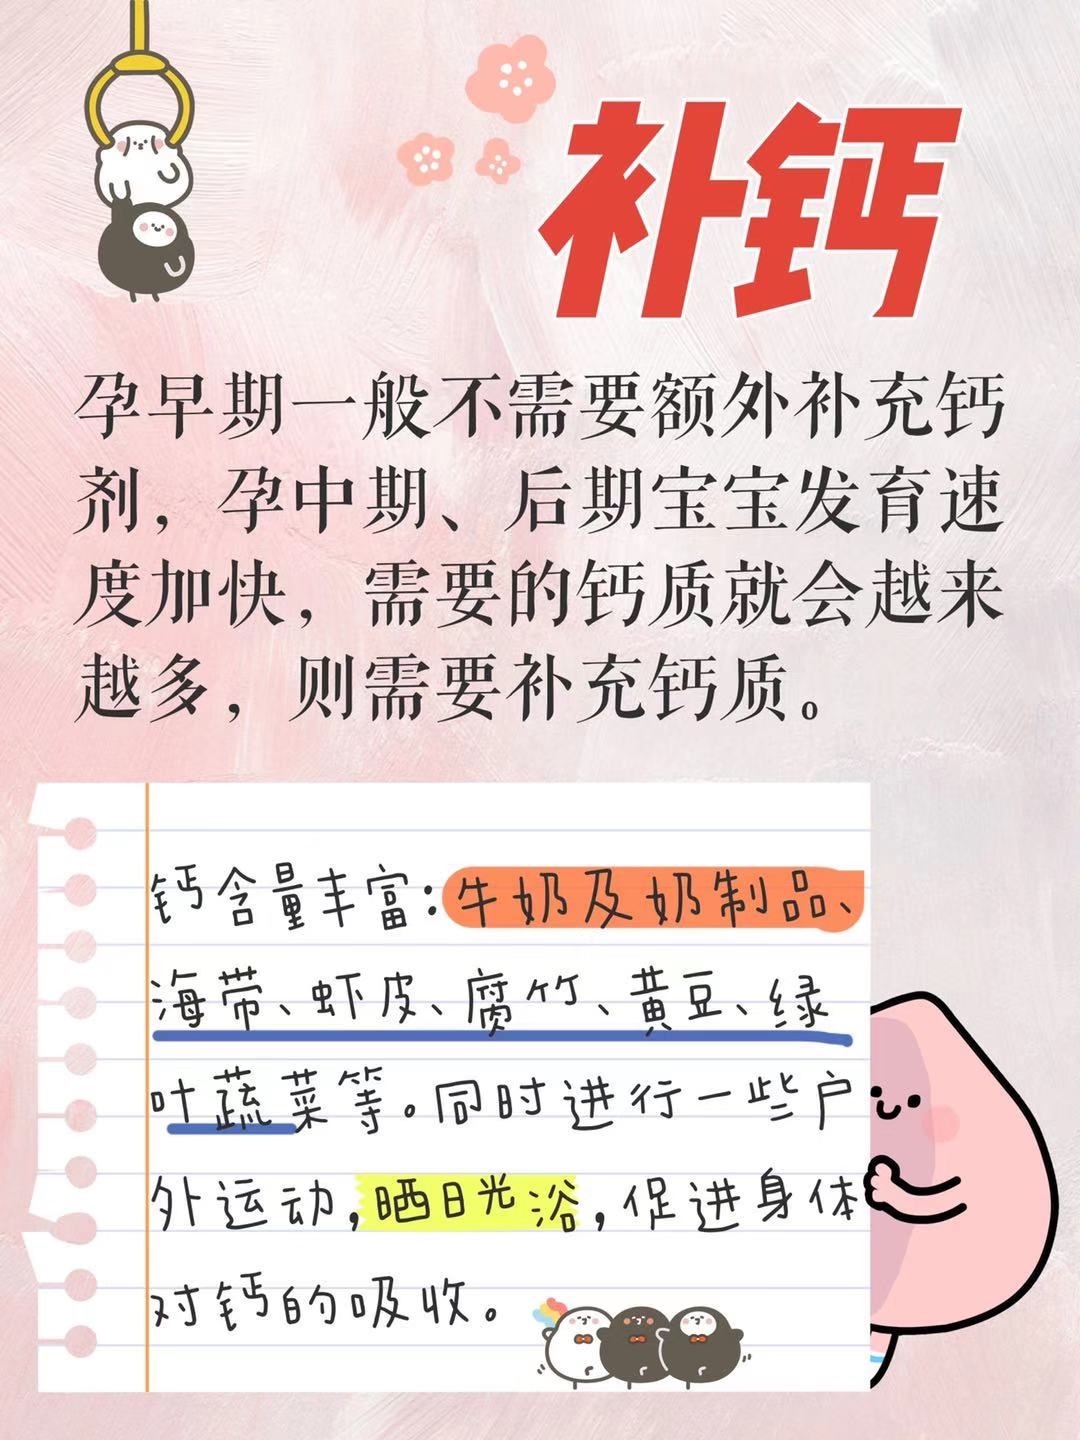 补钙
孕早期一般不需要额外补充钙
剂，孕中期、后期宝宝发育速
度加快，需要的钙质就会越来
越多，则需要补充钙质。
钙含量丰富：牛奶及奶制品、
海带、虾皮、腐竹、黄豆、绿
叶蔬菜等。同时进行一些户
外运动，晒日光浴，促进身体
对钙的吸收。